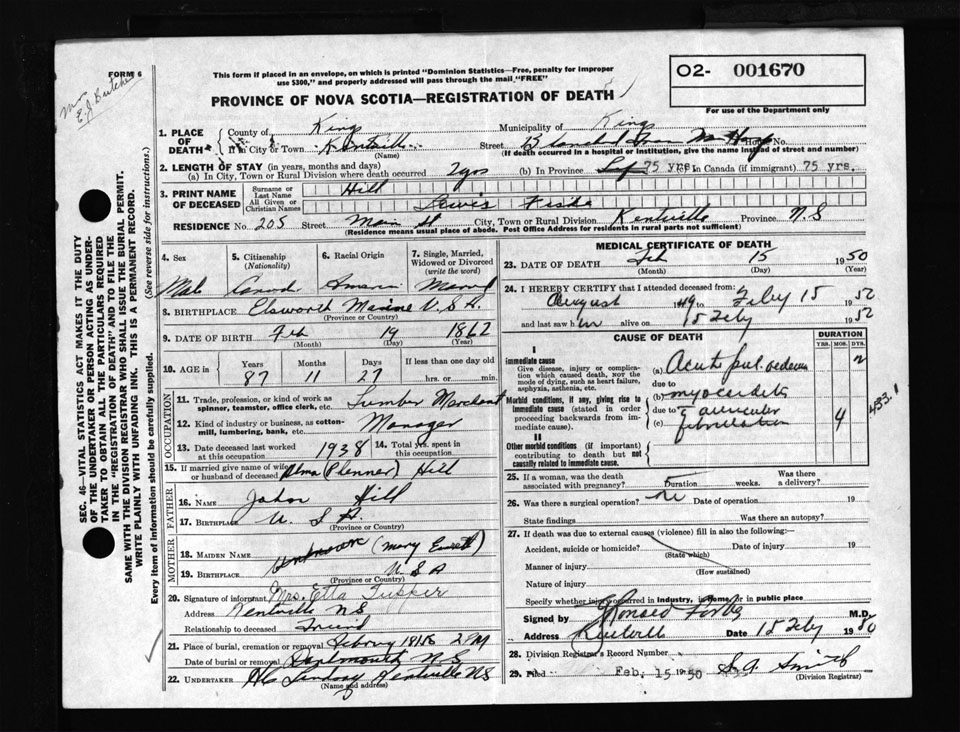 Mrs E.J. Butcher
FORM 6
This form if placed in an envelope, on which is printed "Dominion Statistics—Free, penalty for improper
use $300," and properly addressed will pass through the mail "FREE"
02- 001670
For use of the Department only
PROVINCE OF NOVA SCOTIA—REGISTRATION OF DEATH
1. PLACE OF DEATH County of Kings Municipality of Kings
If in City or Town Kentville (Name) Street House No.
(If death occurred in a hospital or institution, give the name instead of street and number)
2. LENGTH OF STAY (in years, months and days)
(a) In City, Town or Rural Division where death occurred 2 yrs (b) In Province 75 yrs. (c) In Canada (if immigrant) 75 yrs.
3. PRINT NAME OF DECEASED Surname or Last Name Hill
All Given or Christian Names Lewis
RESIDENCE No. 205 Street Main St City, Town or Rural Division Kentville Province N.S
(Residence means usual place of abode. Post Office Address for residents in rural parts not sufficient)
4. Sex 5. Citizenship (Nationality) 6. Racial Origin 7. Single, Married, Widowed or Divorced (write the word)
Male
8. BIRTHPLACE Elsworth Maine U.S.A.
(Province or Country)
9. DATE OF BIRTH Feb 19 1862
(Month) (Day) (Year)
10. AGE in Years Months Days If less than one day old
87 11 27 hrs. or min.
OCCUPATION
11. Trade, profession, or kind of work as spinner, teamster, office clerk, etc. Lumber Merchant
12. Kind of industry or business, as cotton-mill, lumbering, bank, etc. Manager
13. Date deceased last worked at this occupation 1938 14. Total yrs. spent in this occupation
15. If married give name of wife or husband of deceased Hill
FATHER
16. Name John Hill
17. Birthplace U.S.A.
(Province or Country)
MOTHER
18. MAIDEN NAME Unknown (Mary Everett)
19. Birthplace U S A
(Province or Country)
20. Signature of informant Mrs. Etta Tupper
Address Kentville NS
Relationship to deceased Friend
21. Place of burial, cremation or removal
Date of burial or removal Dartmouth N.S
22. UNDERTAKER Lindsay Kentville NS
(Name and address)
MEDICAL CERTIFICATE OF DEATH
23. DATE OF DEATH Feb 15 1950
(Month) (Day) (Year)
24. I HEREBY CERTIFY that I attended deceased from:
August 1949 to Feby 15 1952
and last saw him alive on 15 Feby 1952
CAUSE OF DEATH DURATION
YRS. MOS. DYS.
I
Immediate cause
Give disease, injury or complication which caused death, not the mode of dying, such as heart failure, asphyxia, asthenia, etc.
(a) Acute pul. oedema 2
due to
Morbid conditions, if any, giving rise to immediate cause (stated in order proceeding backwards from immediate cause).
(b) myocarditis
due to
(c) auricular fibrillation 4
433.1
II
Other morbid conditions (if important) contributing to death but not causally related to immediate cause.
25. If a woman, was the death associated with pregnancy? Duration weeks. Was there a delivery?
26. Was there a surgical operation? No Date of operation 19
State findings Was there an autopsy?
27. If death was due to external causes (violence) fill in also the following:—
Accident, suicide or homicide? Date of injury 19
(State which)
Manner of injury
(How sustained)
Nature of injury
Specify whether injury occurred in industry, in home, or in public place
Signed by M.D.
Address Kentville Date 15 Feby 1950
28. Division Registrar's Record Number
29. Filed Feb. 15 1950 Smith
(Division Registrar)
SEC. 46—VITAL STATISTICS ACT MAKES IT THE DUTY
OF THE UNDERTAKER OR PERSON ACTING AS UNDER-
TAKER TO OBTAIN ALL THE PARTICULARS REQUIRED
IN THE "REGISTRATION OF DEATH" AND TO FILE THE
SAME WITH THE DIVISION REGISTRAR WHO SHALL ISSUE THE BURIAL PERMIT.
WRITE PLAINLY WITH UNFADING INK. THIS IS A PERMANENT RECORD.
Every item of Information should be carefully supplied. (See reverse side for instructions.)